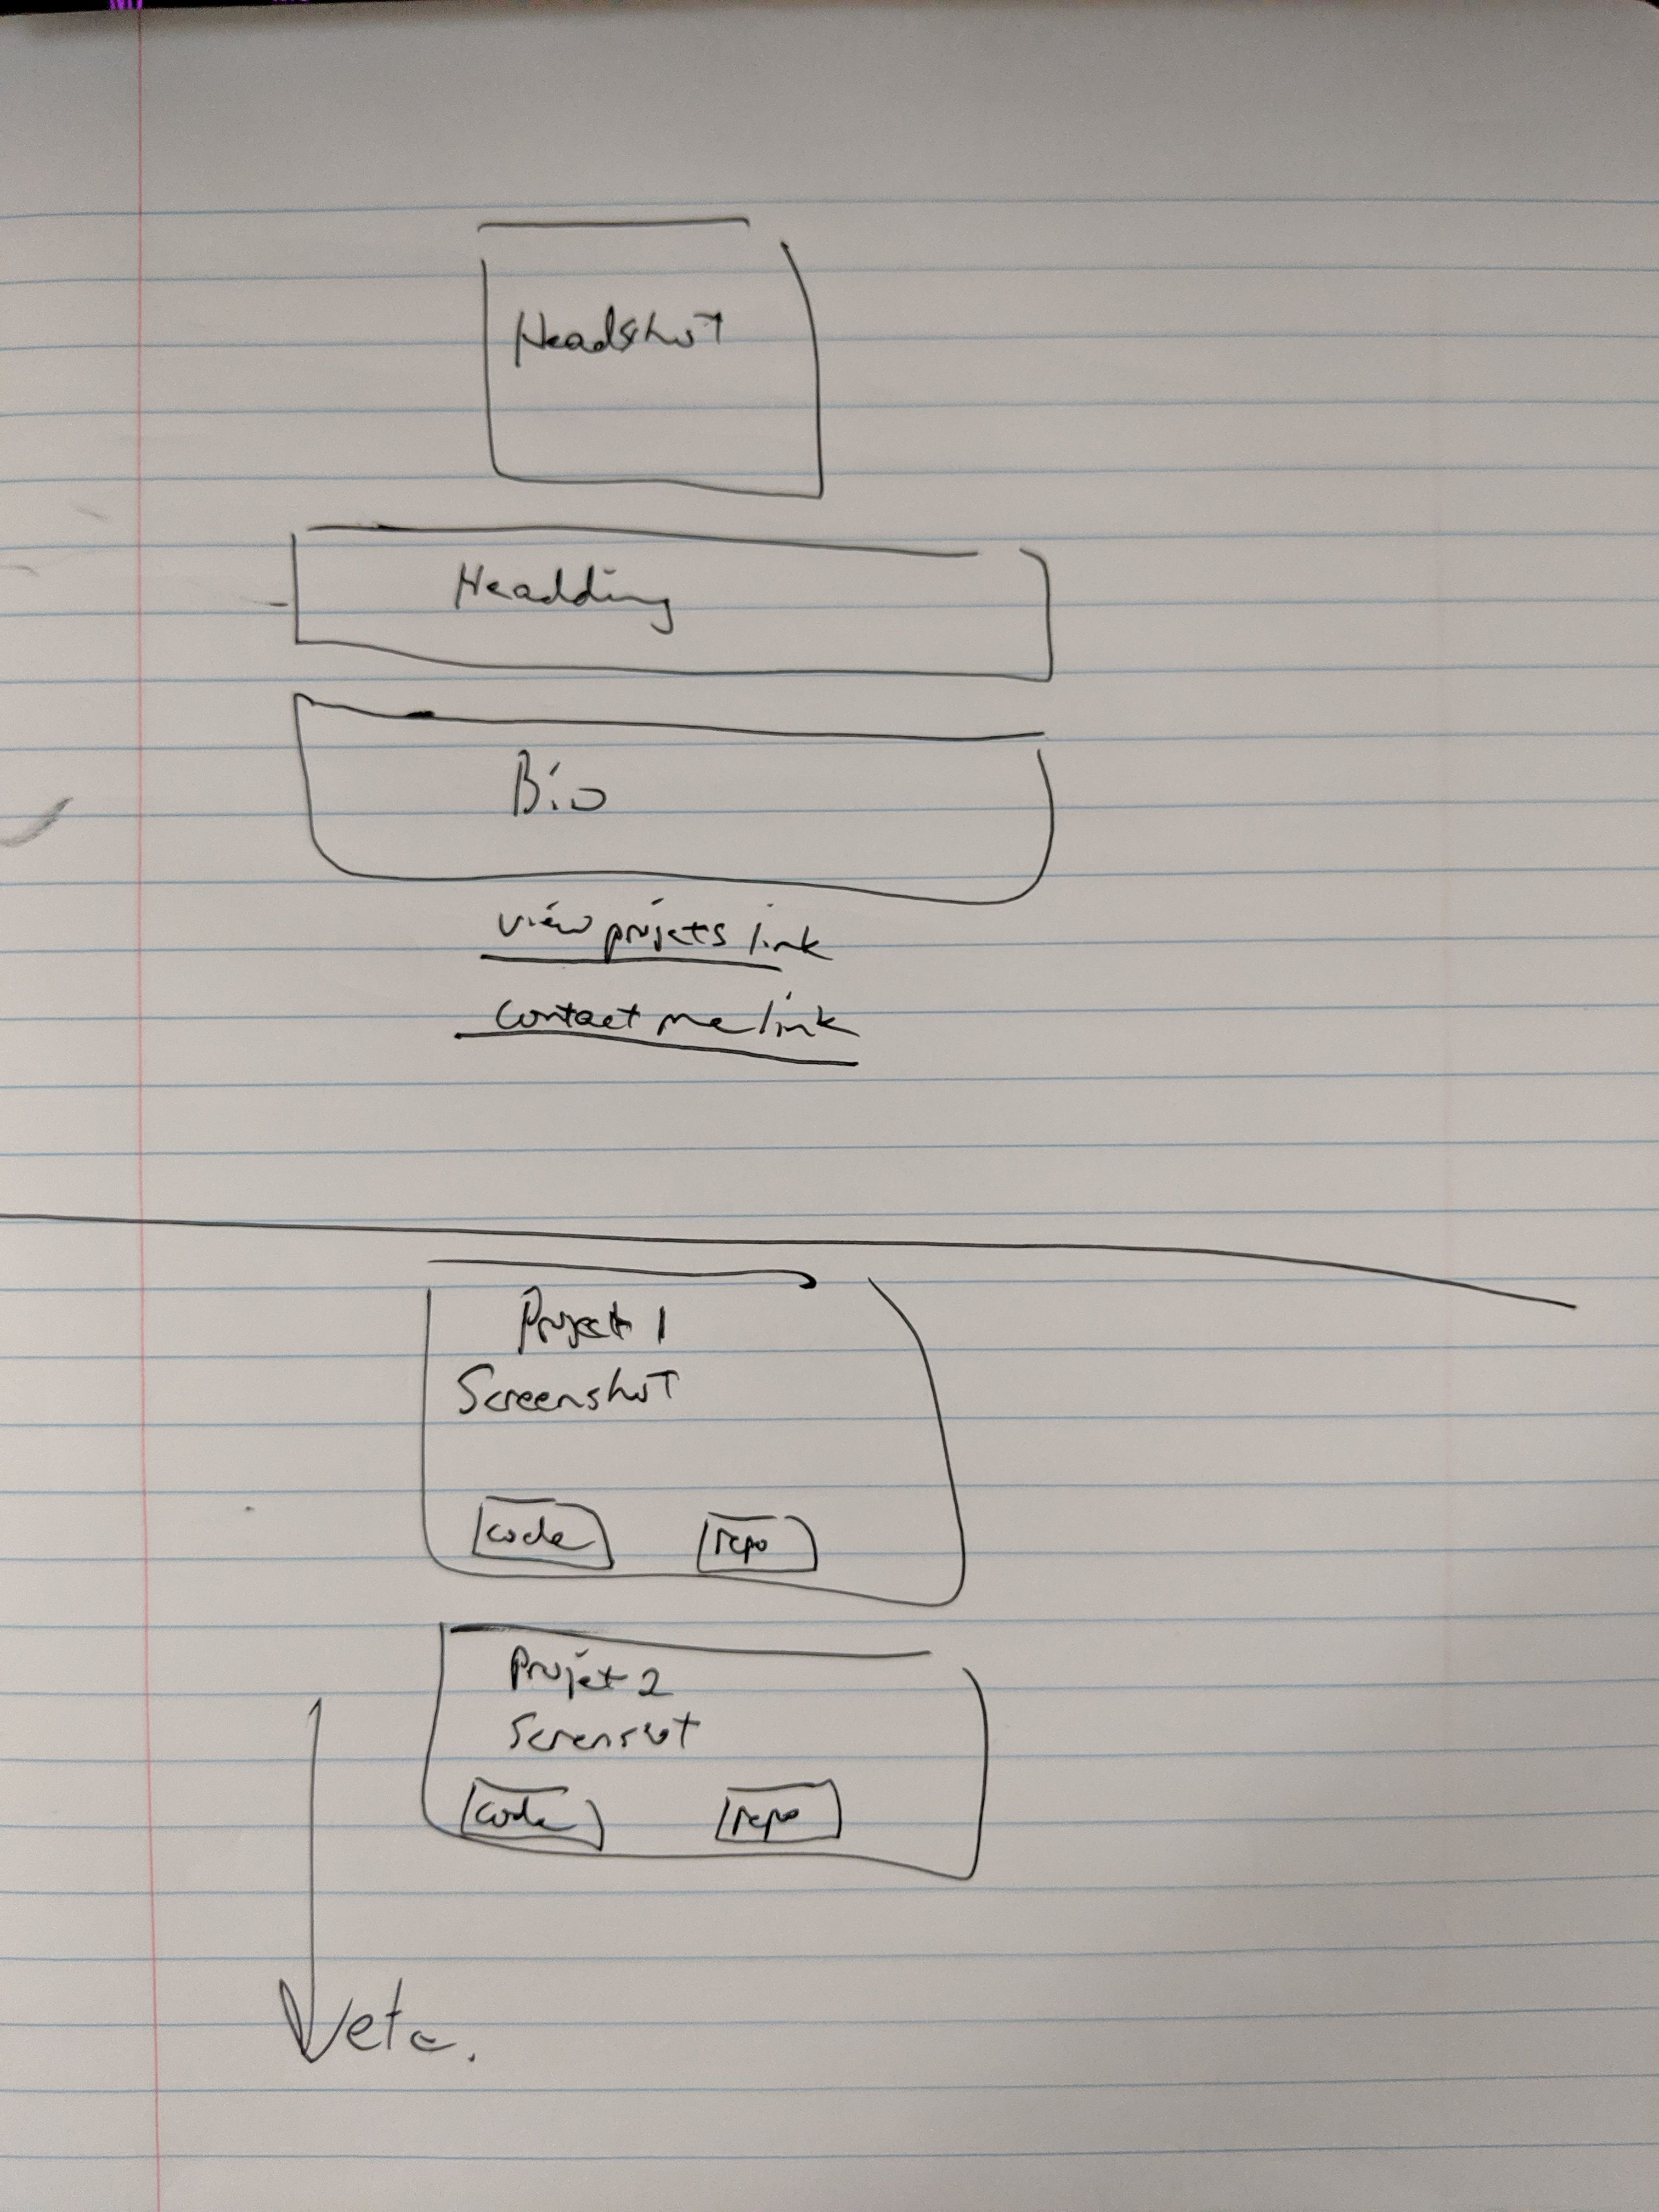 Headshot
Headding
Bio
view projets link
contact me link
Project 1
Screenshot
code repo
Projet 2
Screnshot
code repo
etc.